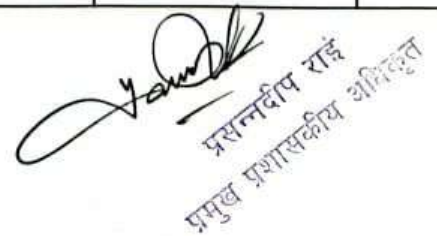 प्रसन्नदीप राई
प्रमुख प्रशासकीय अधिकृत